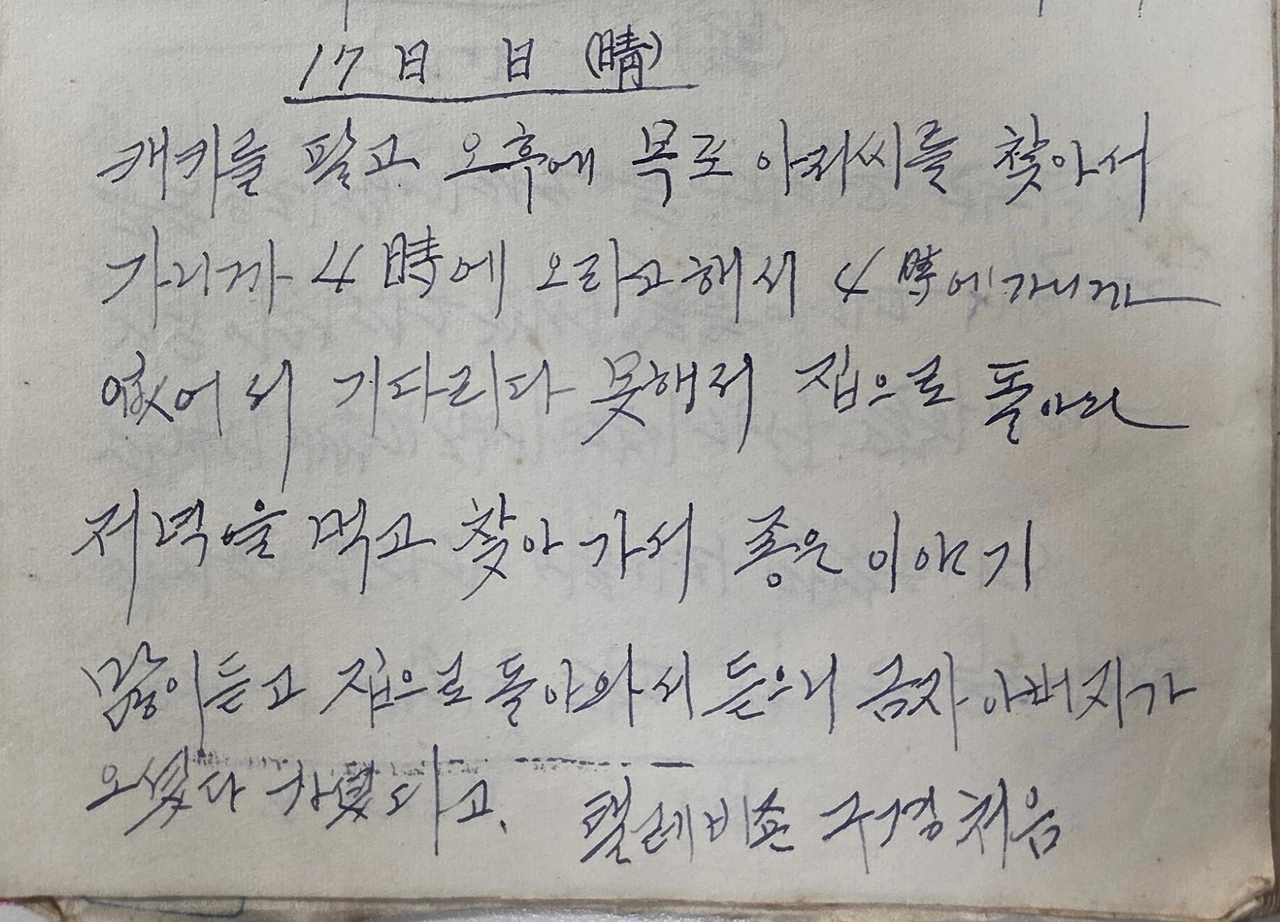 17日 日 (晴)
캐키를 팔고 오후에 목포 아저씨를 찾아서
가니까 4時에 오라고 해서 4時에 가니까
없어서 기다리다 못해서 집으로 돌아와
저녁을 먹고 찾아 가서 좋은 이야기
많이 듣고 집으로 돌아와서 듣으니 금자 아버지가
오셨다 가셨다고. 텔레비죤 구경 처음